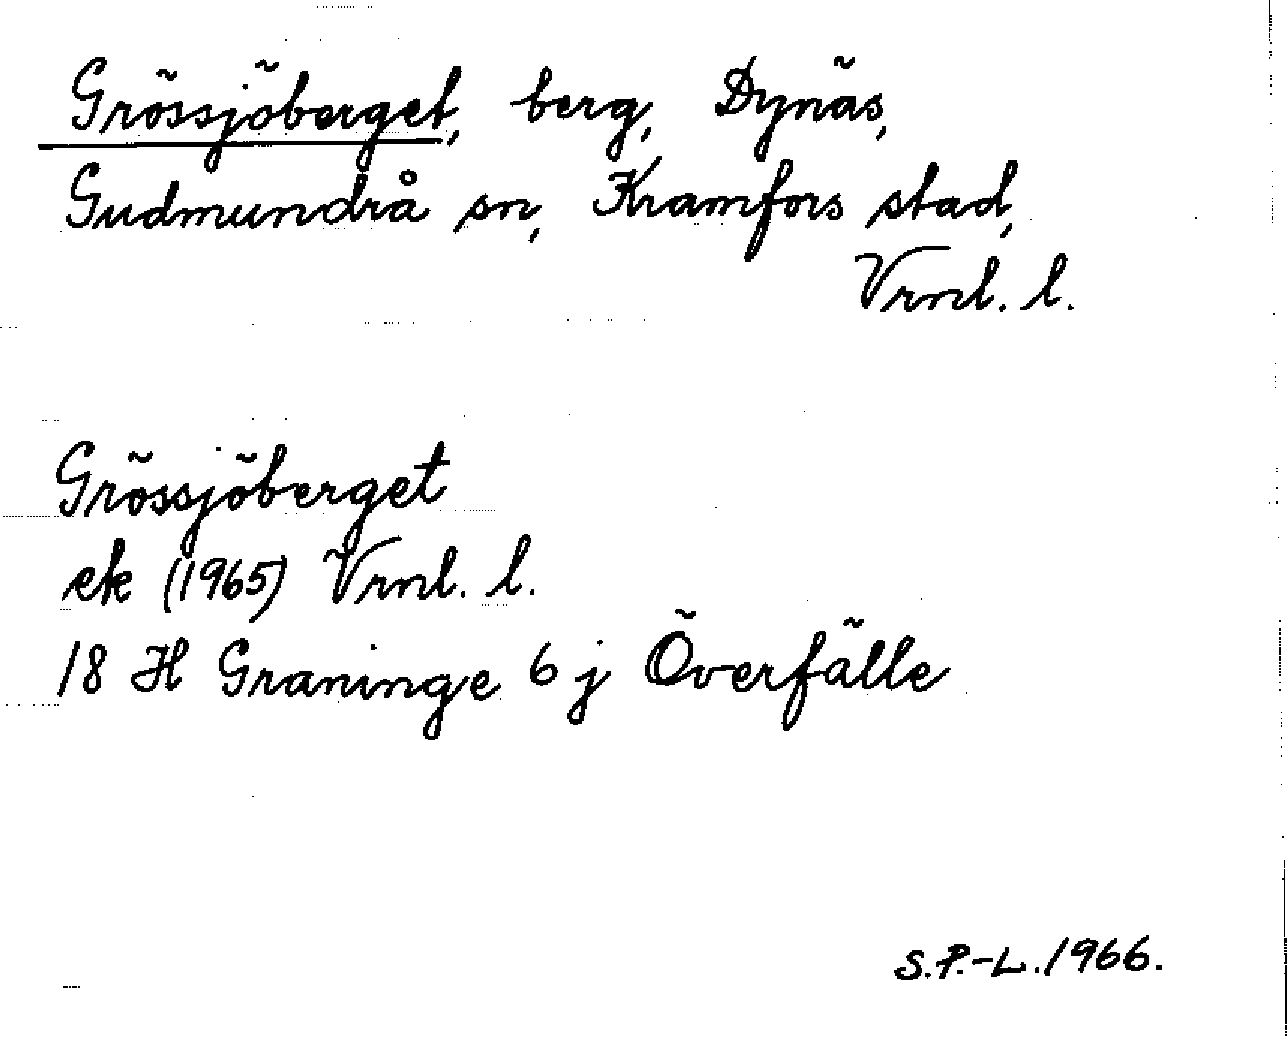 Grössjöberget, berg, Dynäs,
Gudmundrå sn, Kramfors stad,
Vrnl. l.
Grössjöberget
ek (1965) Vrnl. l.
18 H Graninge 6 j Överfälle
S.P.-L. 1966.